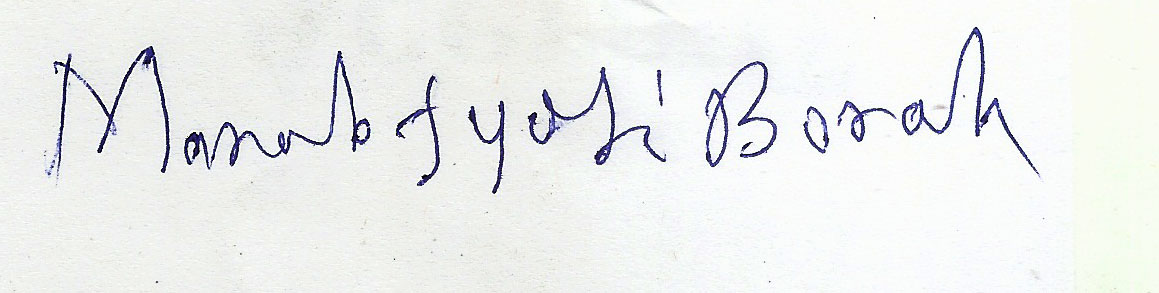 Manab Jyoti Borah